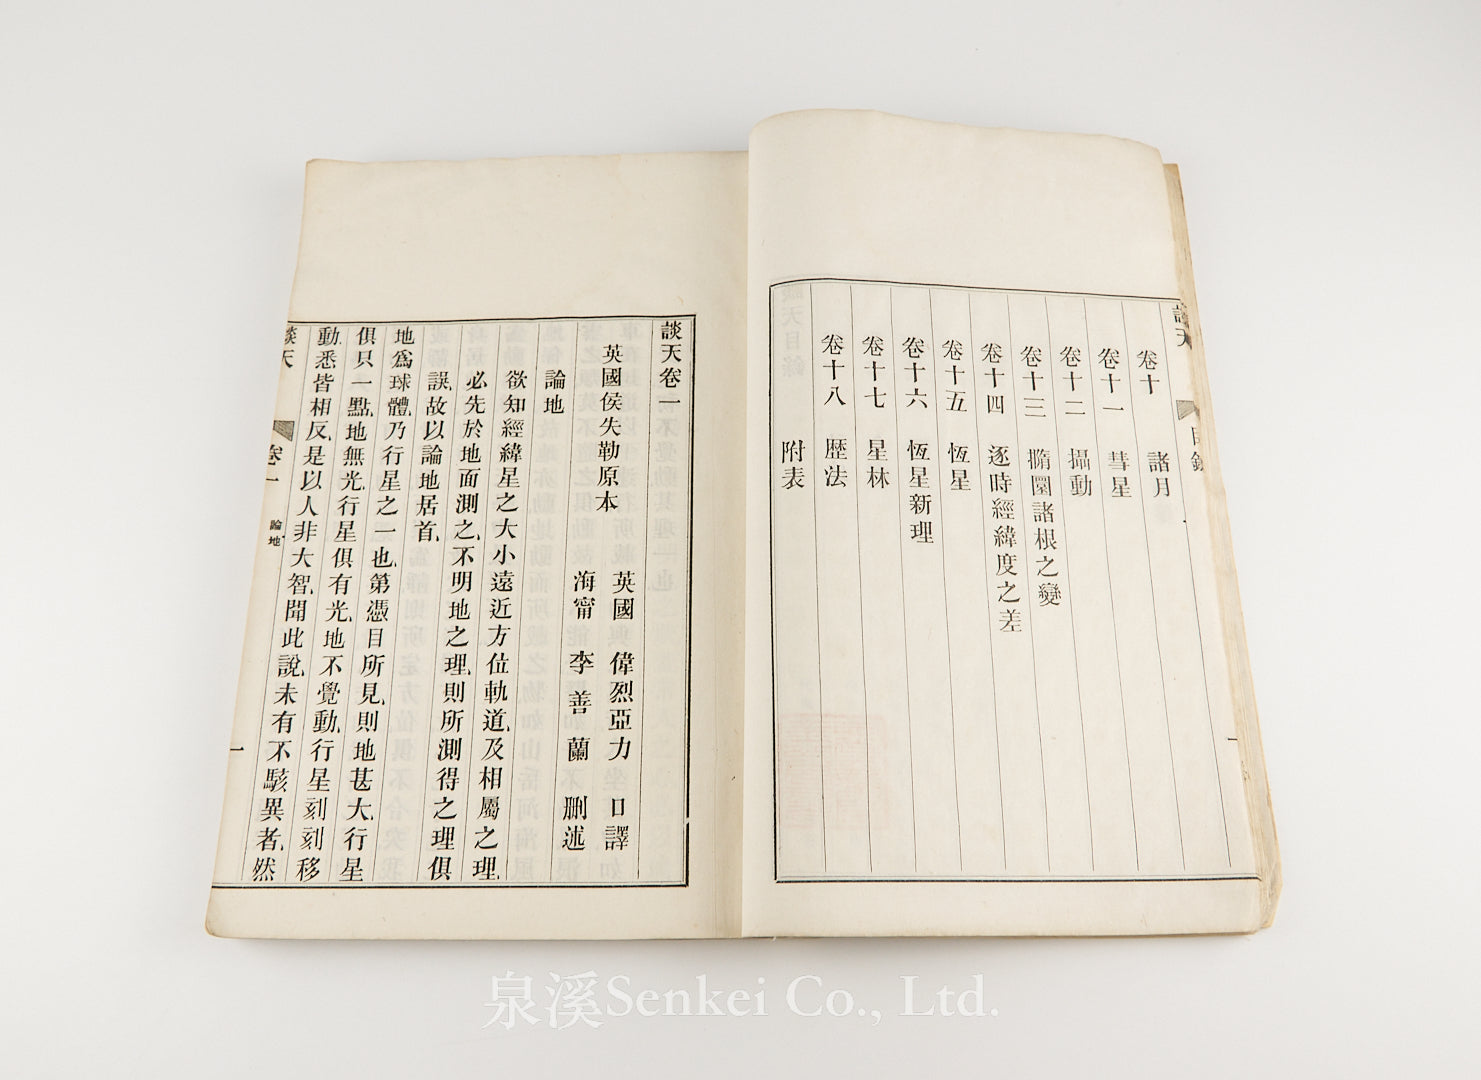 談天
目錄
卷十 諸月
卷十一 彗星
卷十二 攝動
卷十三 橢圜諸根之變
卷十四 逐時經緯度之差
卷十五 恆星
卷十六 恆星新理
卷十七 星林
卷十八 歷法
附表
談天卷一
英國侯失勒原本
英國 偉烈亞力 口譯
海甯 李善蘭 刪述
論地
欲知經緯星之大小遠近方位軌道、及相屬之理、
必先於地面測之、不明地之理、則所測得之理俱
誤、故以論地居首、
地爲球體、乃行星之一也、第憑目所見、則地甚大、行星
俱只一點、地無光、行星俱有光、地不覺動、行星刻刻移
動、悉皆相反、是以人非大智、聞此說、未有不駭異者、然
談天
卷一
論地
一
泉溪Senkei Co., Ltd.